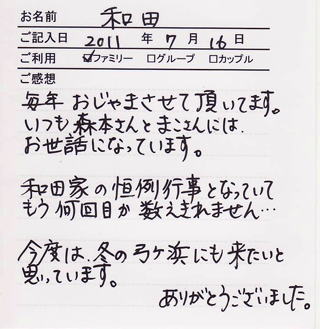 お名前 和田
ご記入日 2011 年 7 月 16 日
ご利用 ☑ファミリー □グループ □カップル
ご感想
毎年 おじゃまさせて頂いてます。
いつも 森本さんとまこさんには、
お世話になっています。
和田家の恒例行事となっていて
もう 何回目か 数えきれません…
今度は、冬の弓ヶ浜にも来たいと
思っています。
ありがとうございました。